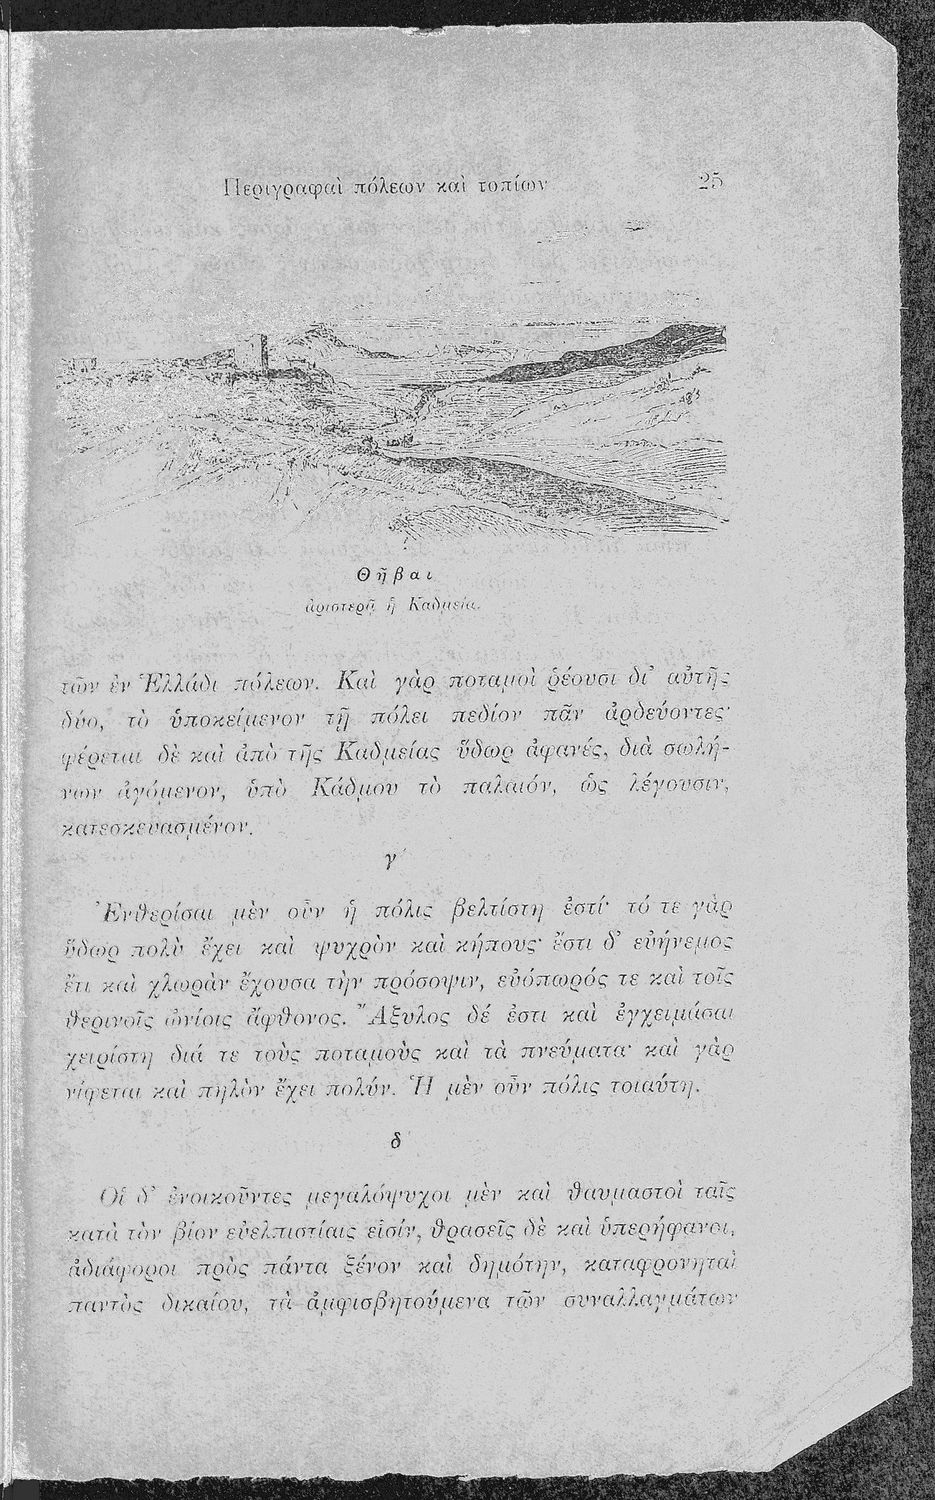 Περιγραφαὶ πόλεων καὶ τοπίων 25
Θῆβαι
ἀριστερᾷ ἡ Καδμεία.
τῶν ἐν Ἑλλάδι πόλεων. Καὶ γὰρ ποταμοὶ ῥέουσι δι’ αὐτῆς
δύο, τὸ ὑποκείμενον τῇ πόλει πεδίον πᾶν ἀρδεύοντες·
φέρεται δὲ καὶ ἀπὸ τῆς Καδμείας ὕδωρ ἀφανές, διὰ σωλή-
νων ἀγόμενον, ὑπὸ Κάδμου τὸ παλαιόν, ὡς λέγουσιν,
κατεσκευασμένον.
γ΄
Ἐνθερίσαι μὲν οὖν ἡ πόλις βελτίστη ἐστί· τό τε γὰρ
ὕδωρ πολὺ ἔχει καὶ ψυχρὸν καὶ κήπους· ἔστι δ’ εὐήνεμος
ἔτι καὶ χλωρὰν ἔχουσα τὴν πρόσοψιν, εὐόπωρός τε καὶ τοῖς
θερινοῖς ὠνίοις ἄφθονος. Ἄξυλος δέ ἐστι καὶ ἐγχειμάσαι
χειρίστη διά τε τοὺς ποταμοὺς καὶ τὰ πνεύματα· καὶ γὰρ
νίφεται καὶ πηλὸν ἔχει πολύν. Ἡ μὲν οὖν πόλις τοιαύτη.
δ΄
Οἱ δ’ ἐνοικοῦντες μεγαλόψυχοι μὲν καὶ θαυμαστοὶ ταῖς
κατὰ τὸν βίον εὐελπιστίαις εἰσίν, θρασεῖς δὲ καὶ ὑπερήφανοι,
ἀδιάφοροι πρὸς πάντα ξένον καὶ δημότην, καταφρονηταὶ
παντὸς δικαίου, τὰ ἀμφισβητούμενα τῶν συναλλαγμάτων